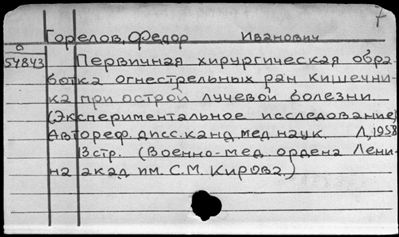 Горелов, Федор Иванович
О
54843 Первичная хирургическая обра-
ботка огнестрельных ран кишечни-
ка при острой лучевой болезни.
(Экспериментальное исследование)
Автореф. дисс. канд. мед. наук. Л, 1958
13 стр. (Военно-мед. ордена Лени-
на акад им. С.М. Кирова.)